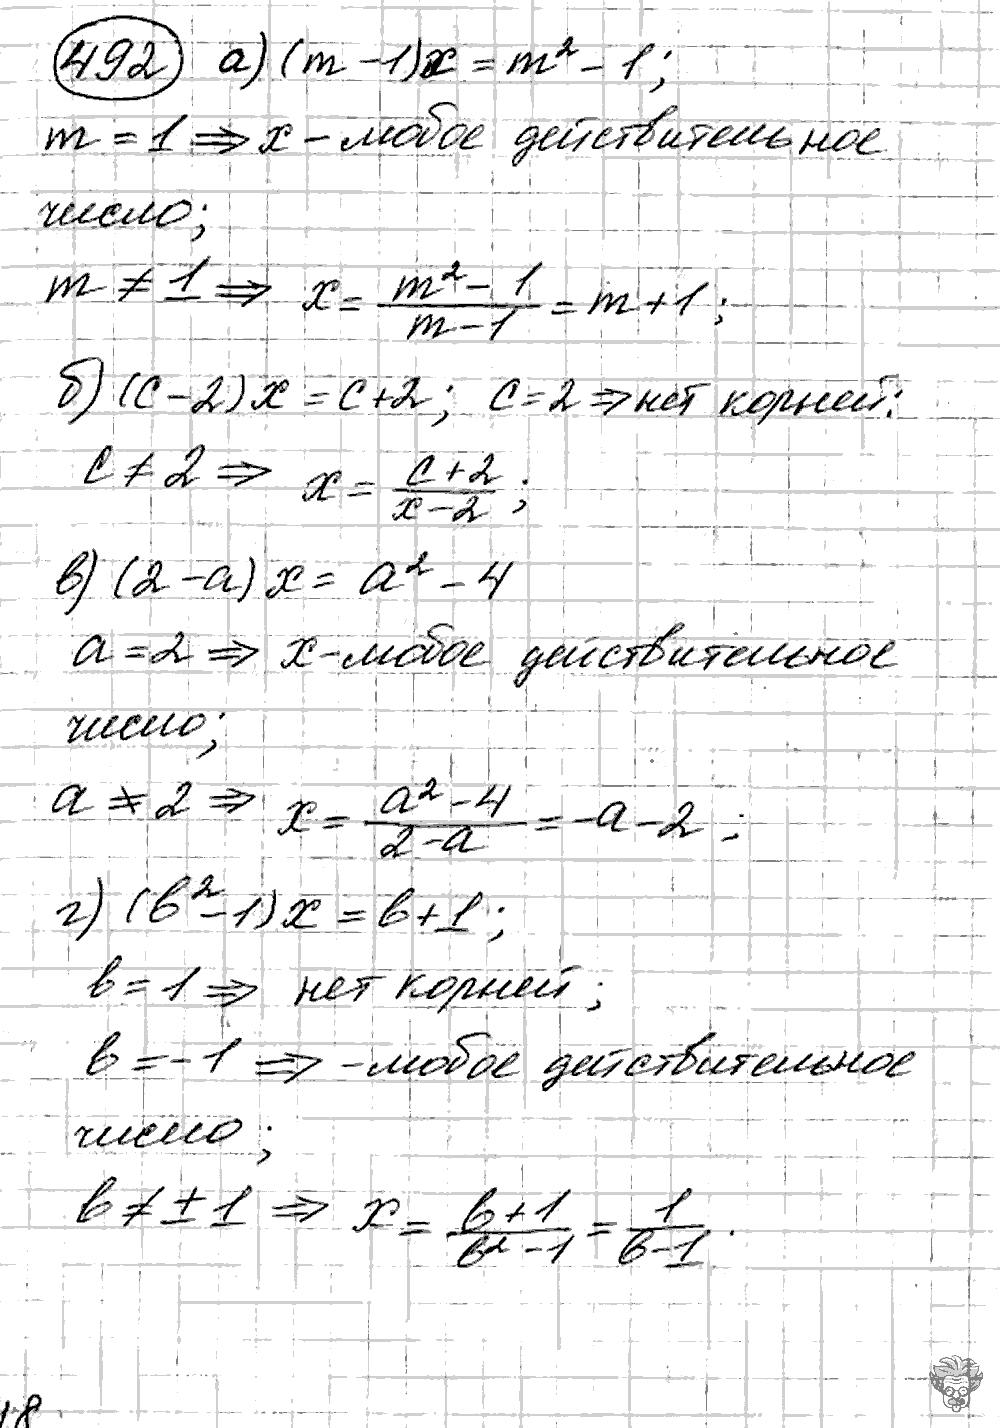 492 а) (m – 1)x = m² – 1;
m = 1 ⇒ x – любое действительное
число;
m ≠ 1 ⇒ x = (m² – 1)/(m – 1) = m + 1;
б) (c – 2)x = c + 2; c = 2 ⇒ нет корней:
c ≠ 2 ⇒ x = (c + 2)/(x – 2);
в) (2 – a)x = a² – 4
a = 2 ⇒ x – любое действительное
число;
a ≠ 2 ⇒ x = (a² – 4)/(2 – a) = –a – 2;
г) (в² – 1)x = в + 1;
в = 1 ⇒ нет корней;
в = –1 ⇒ – любое действительное
число;
в ≠ ± 1 ⇒ x = (в + 1)/(в² – 1) = 1/(в – 1).